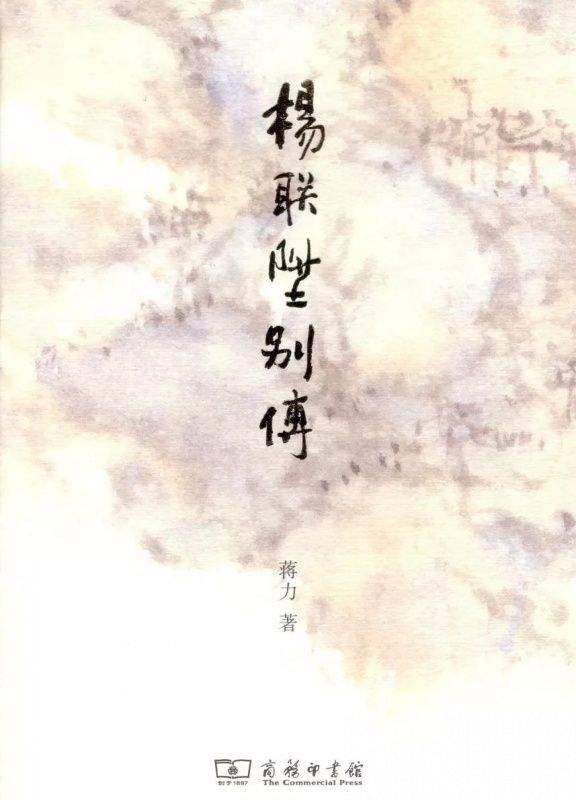 楊联陞别傳
蒋力 著
创于1897
商務印書館
The Commercial Press